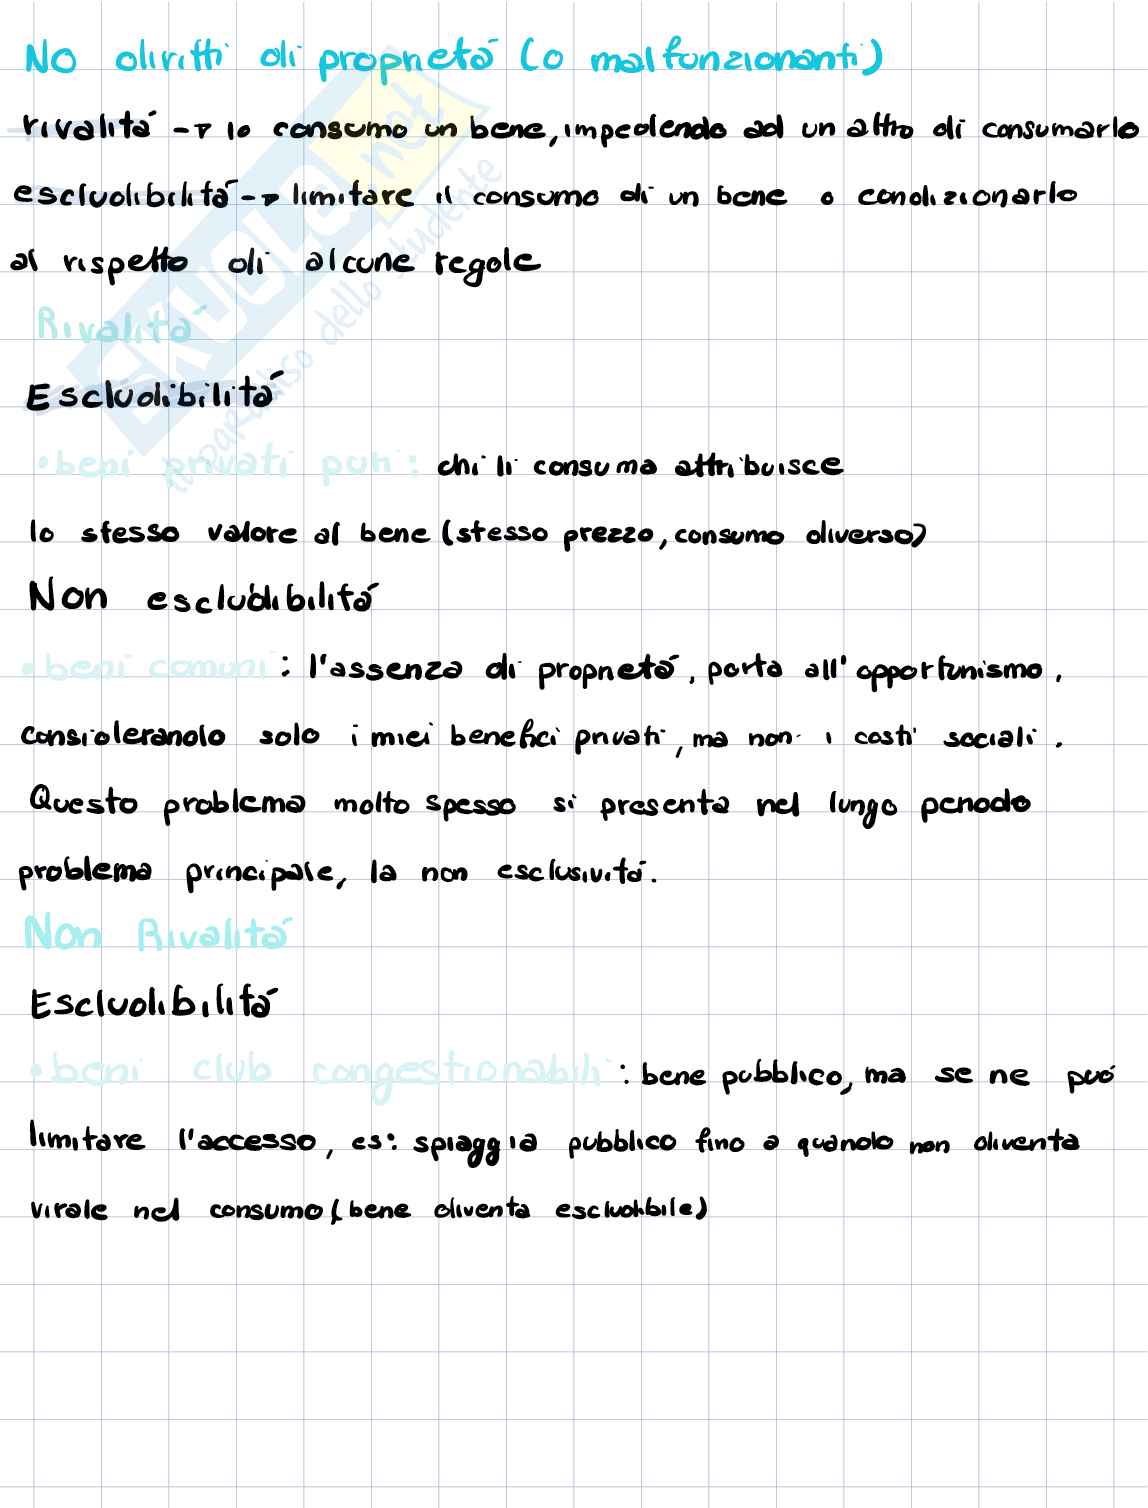 No diritti di proprietá (o malfunzionanti)
rivalitá -> io consumo un bene, impedendo ad un altro di consumarlo
escludibilitá -> limitare il consumo di un bene o condizionarlo
al rispetto di alcune regole
Rivalitá
Escludibilitá
• beni privati puri: chi li consuma attribuisce
lo stesso valore al bene (stesso prezzo, consumo diverso)
Non escludibilitá
• beni comuni: l'assenza di proprietá, porta all'opportunismo,
considerando solo i miei benefici privati, ma non i costi sociali.
Questo problema molto spesso si presenta nel lungo periodo
problema principale, la non esclusivitá.
Non Rivalitá
Escludibilitá
• beni club congestionabili: bene pubblico, ma se ne puó
limitare l'accesso, es: spiaggia pubblico fino a quando non diventa
virale nel consumo (bene diventa escludibile)
SKUOLA.net
il paradiso dello studente